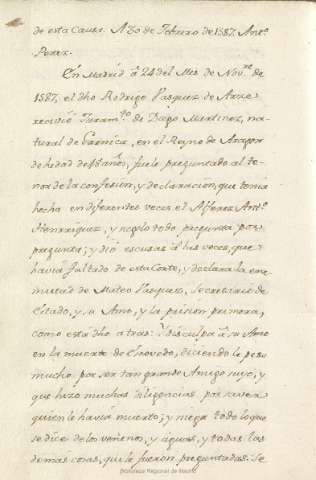 de esta Causa. A 30 de Febrero de 1587. Antº
Perez.
En Madrid á 24 del Mes de Novre de
1587, el dho Rodrigo Vasquez de Arze
recivió Juramto de Diego Martinez, na-
tural de en el Reyno de Aragon
de hedad de años, fuele preguntado al te-
nor de la confesion, y declaracion, que tenia
hecha en diferentes veces el Alferez Antº
Henrriquez, y negolo todo pregunta por
pregunta; y dió escusas á las veces, que
havia faltado de esta Corte, y declara la ene-
mistad de Mateo Vasquez, Secretario de
Estado, y su Amo, y la prision primera,
como está dho atras: Y disculpa á su Amo
en la muerte de Escovedo, diciendo le pesó
mucho por ser tan grande Amigo suyo, y
que hizo muchas diligencias por saver
quien le havia muerto; y niega todo lo que
se dice de los venenos, y aguas, y todas las
demas cosas, que le fueron preguntadas. Se
Biblioteca Regional de Madrid